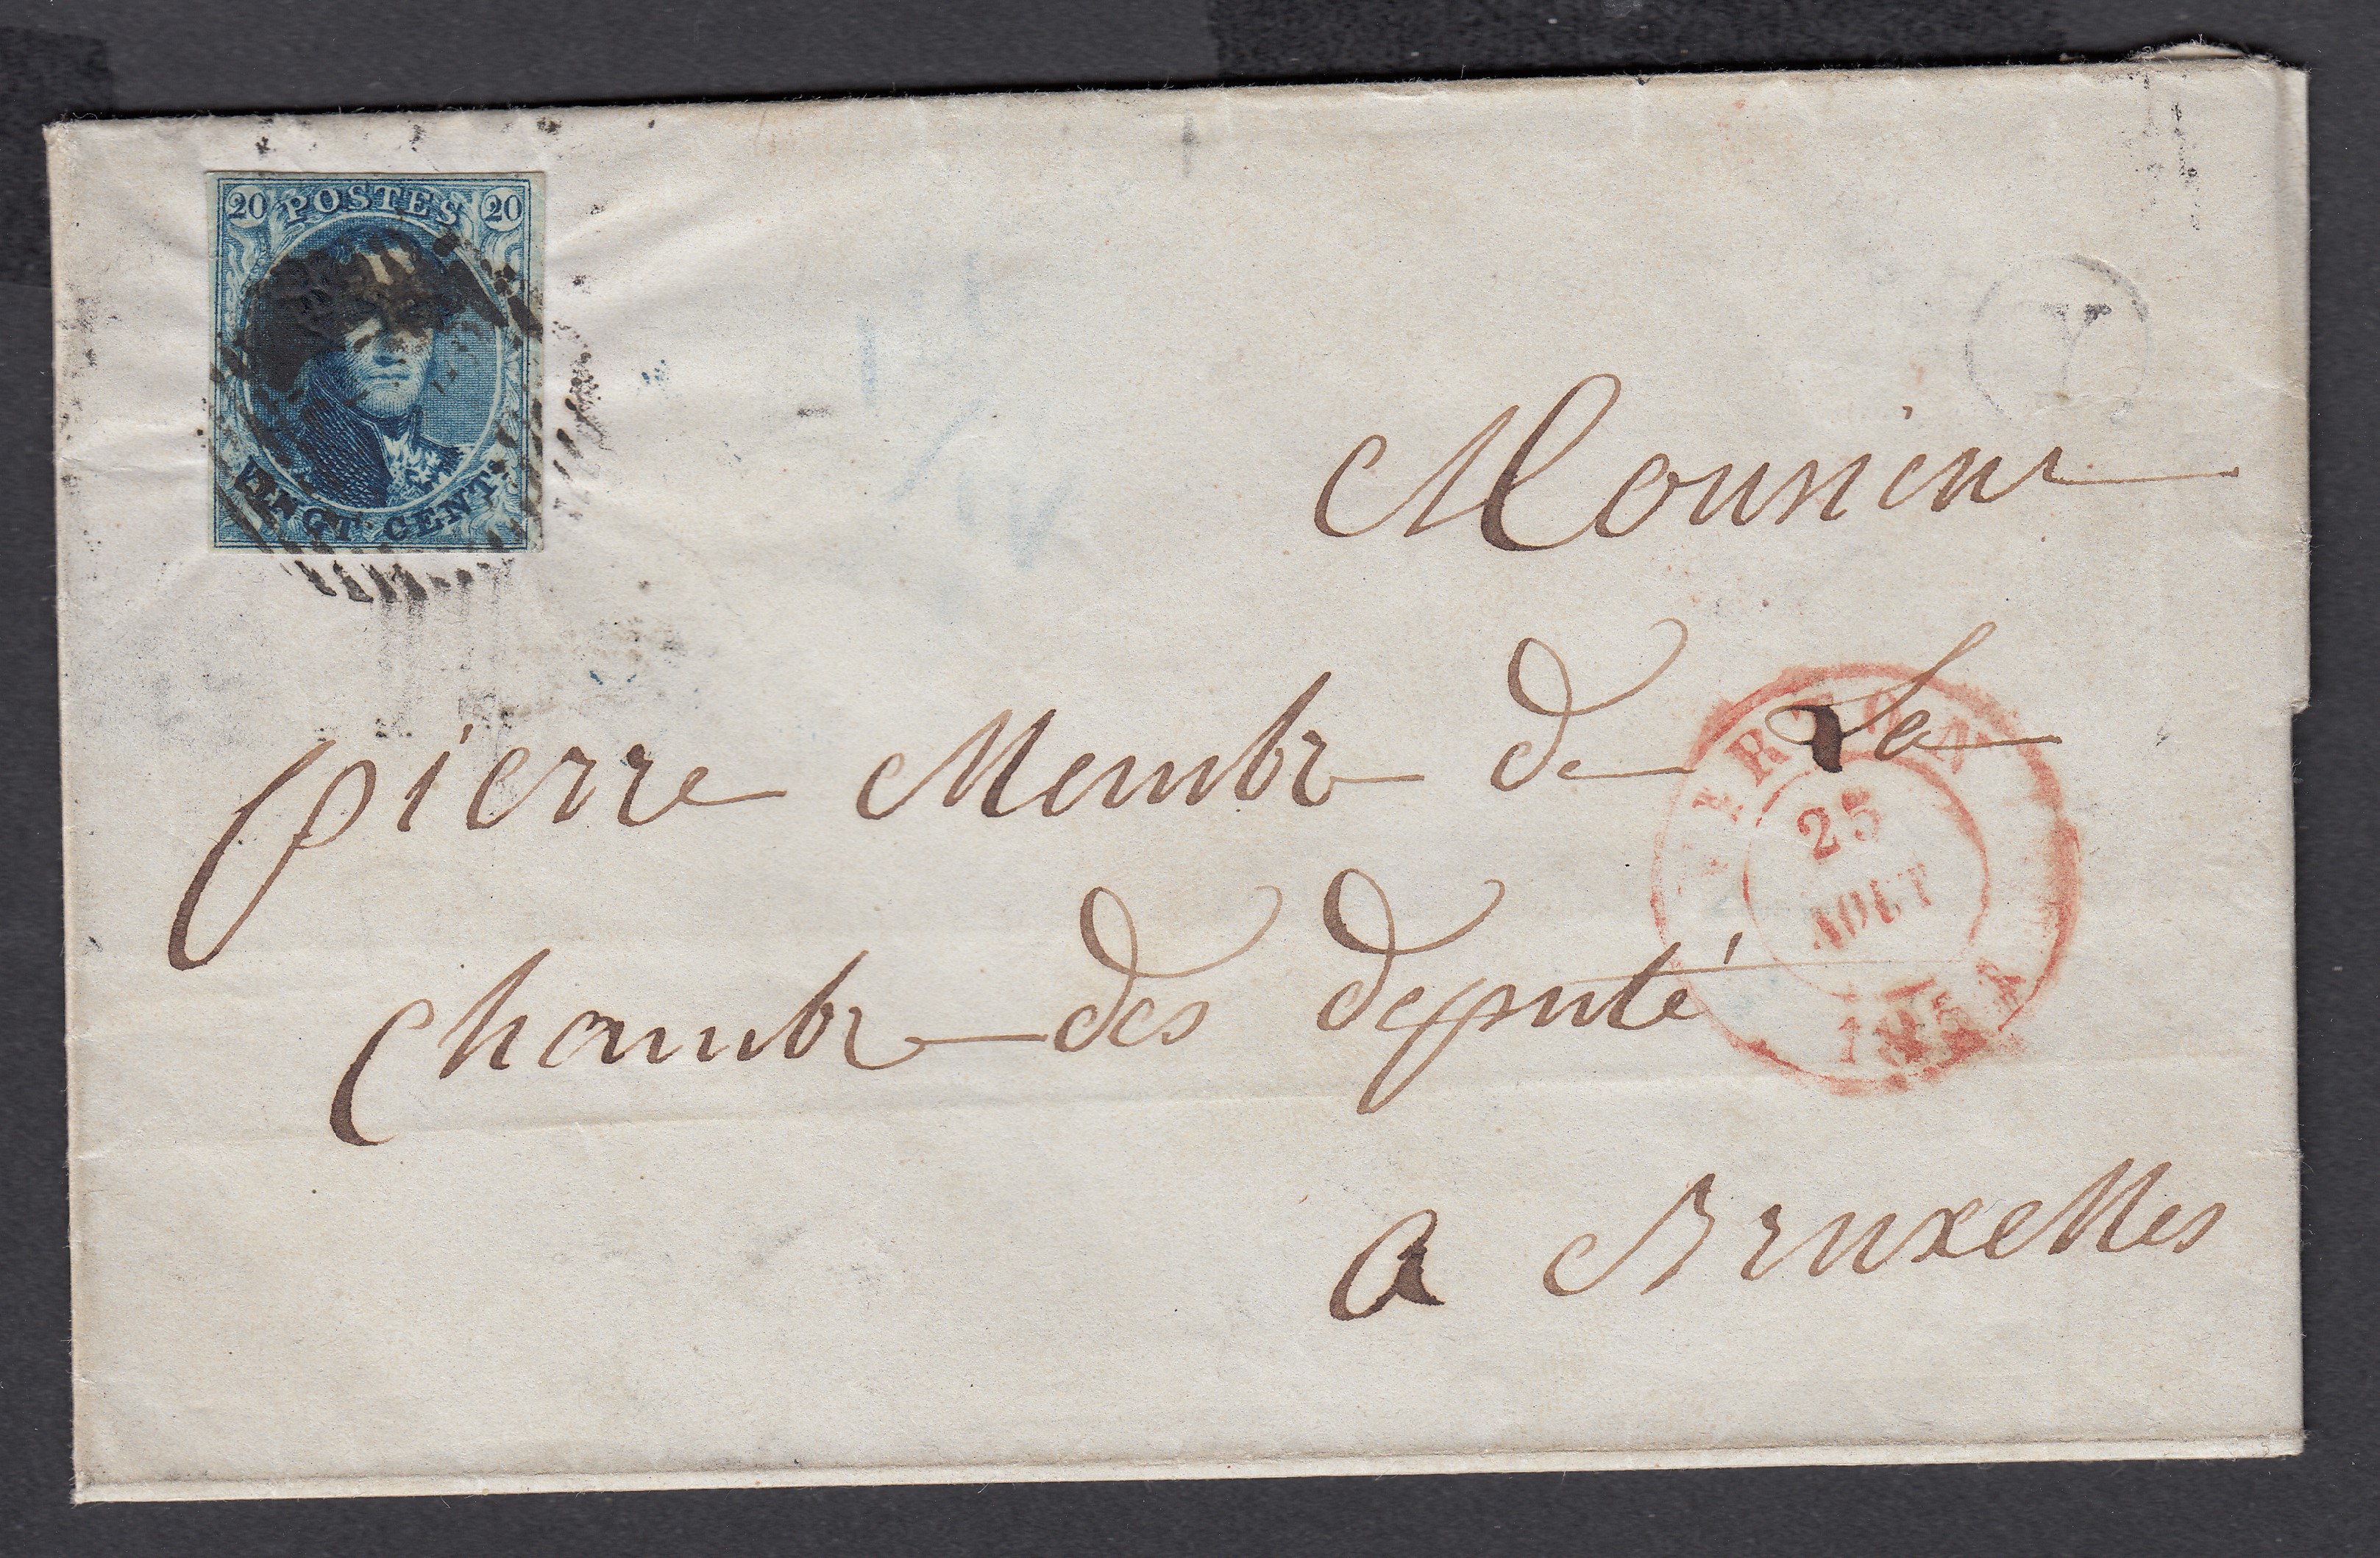 20 POSTES 20
VINGT CENT.
Y
Monsieur
Pierre Membre de La
Chambre des député
a Bruxelles
VIRTON
25
AOUT
1851